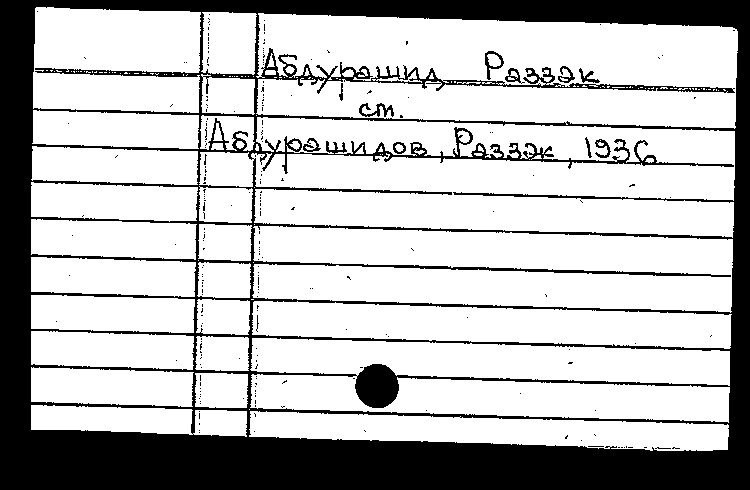 Абдурашид Раззак
ст.
Абдурашидов, Раззак, 1936